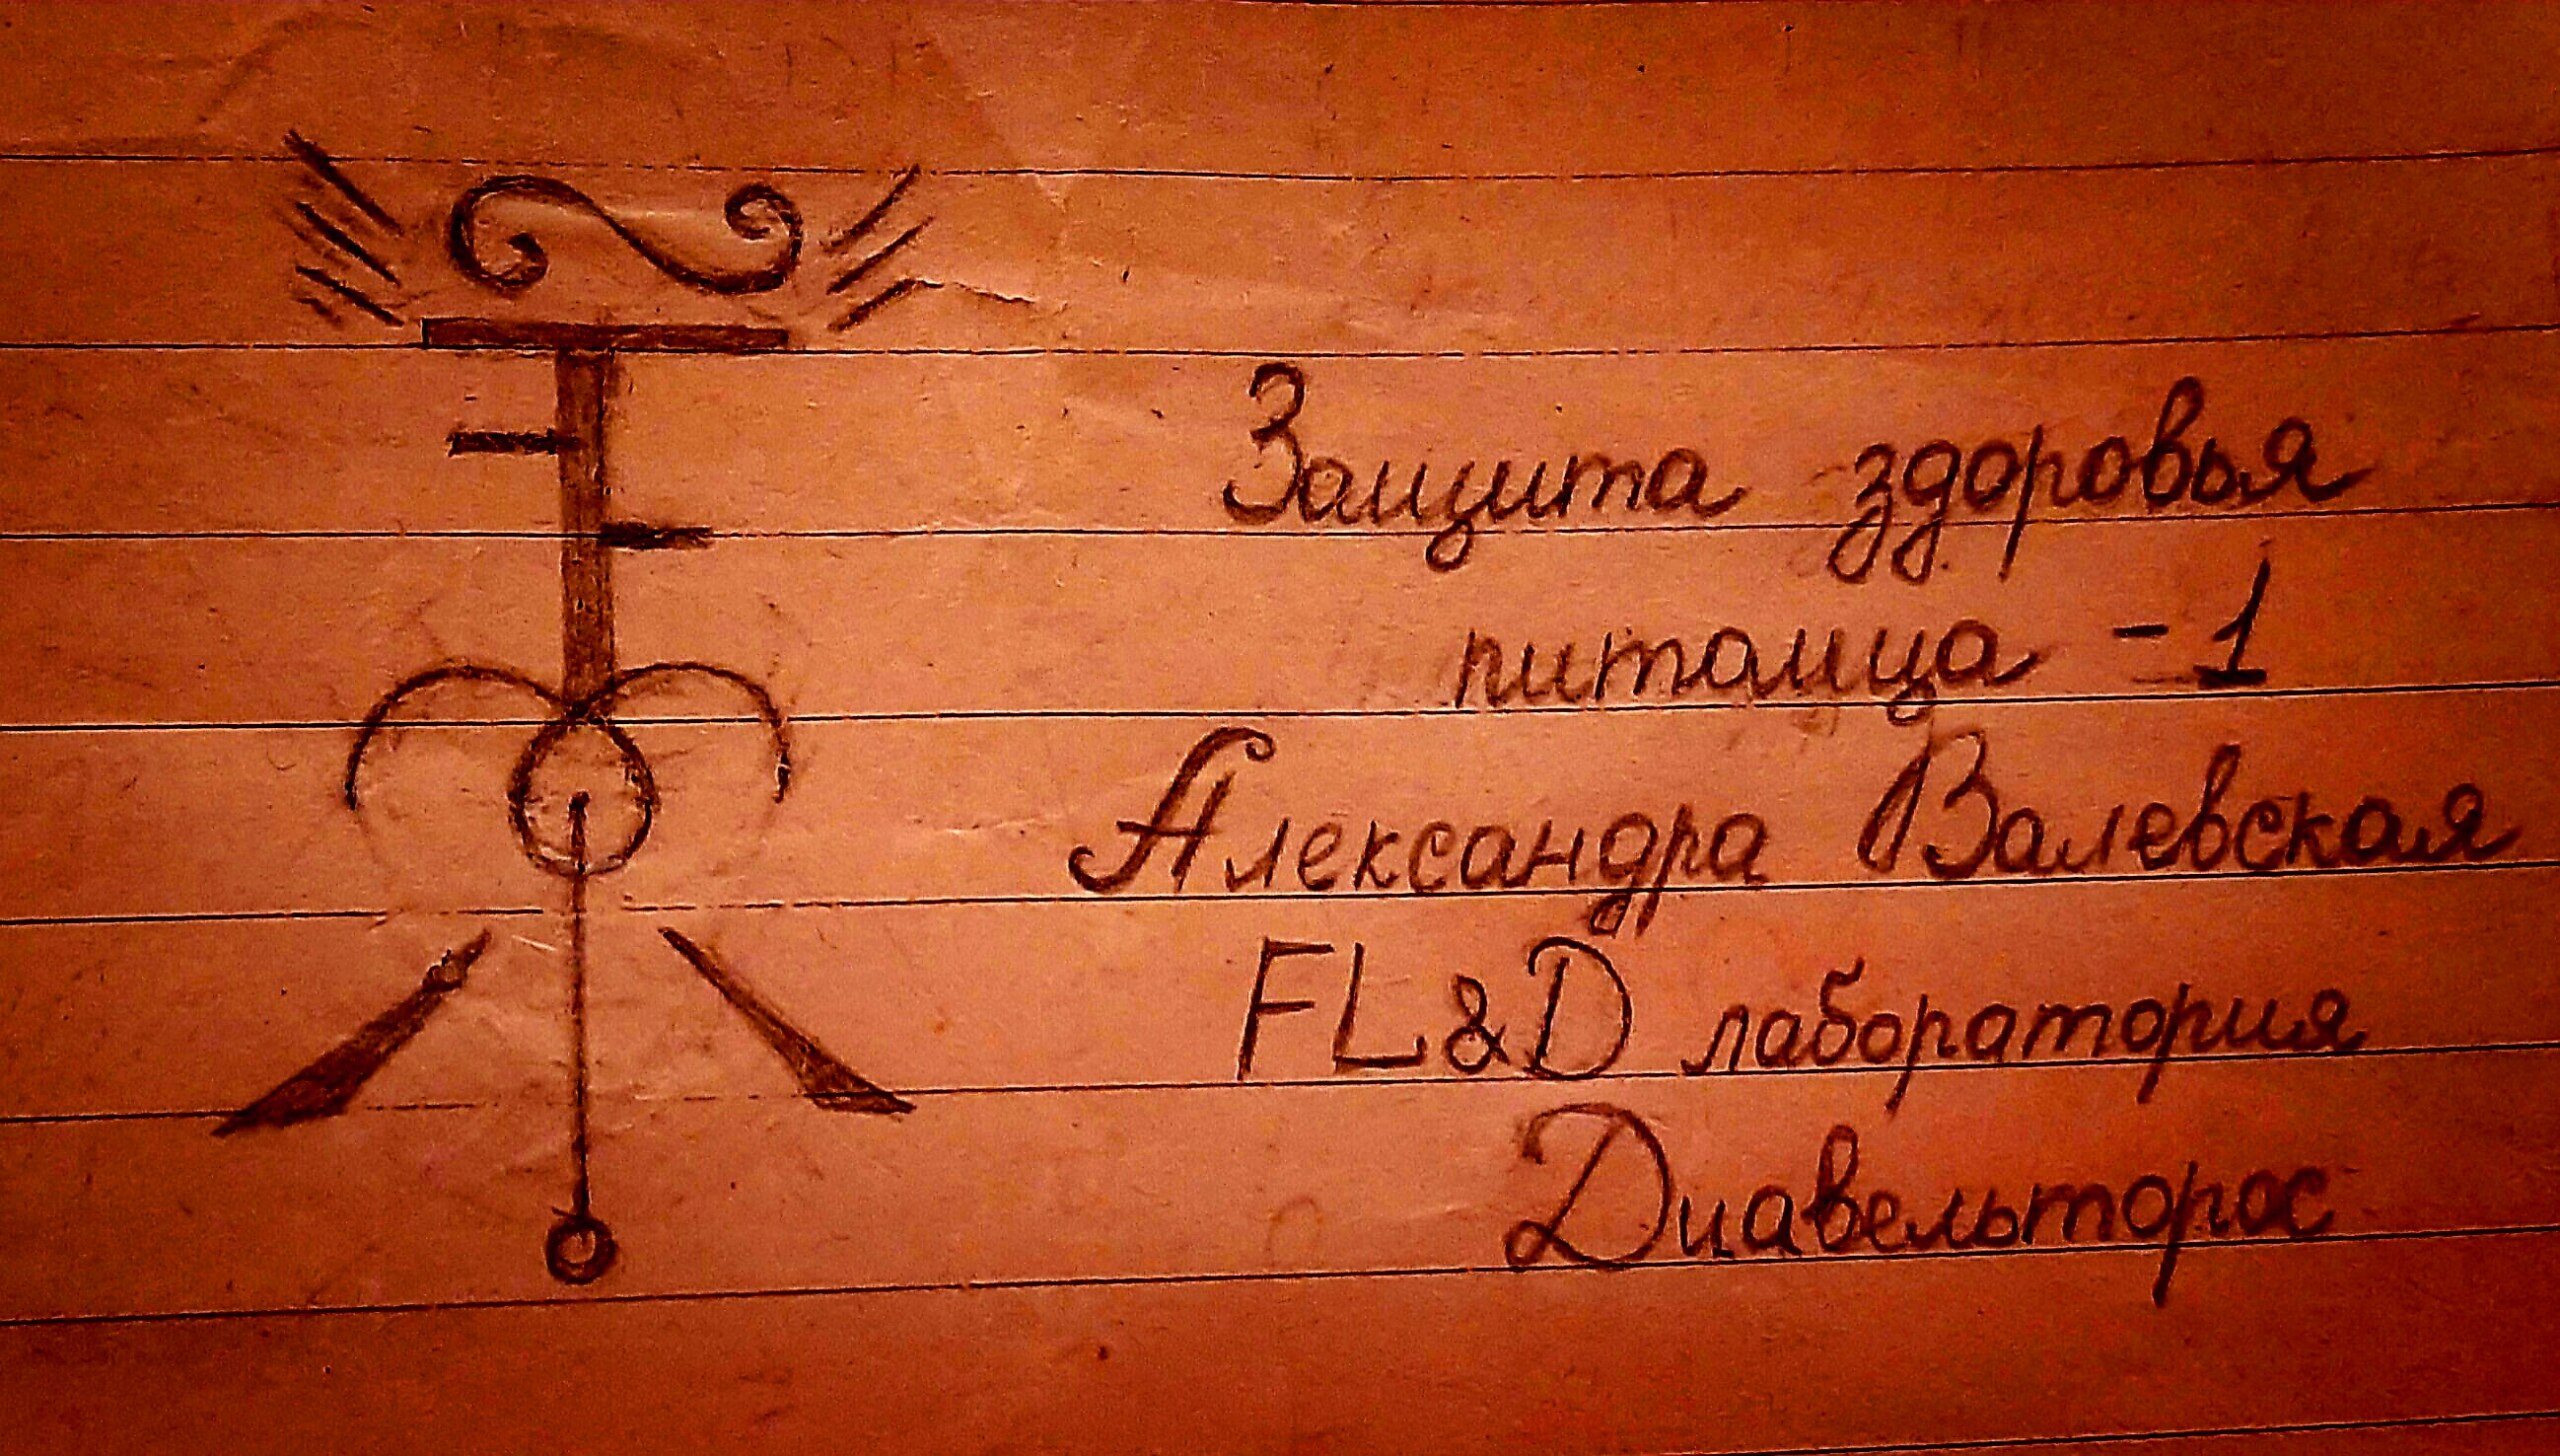 Защита здоровья
питомца - 1
Александра Валевская
FL&D лаборатория
Диавельторос